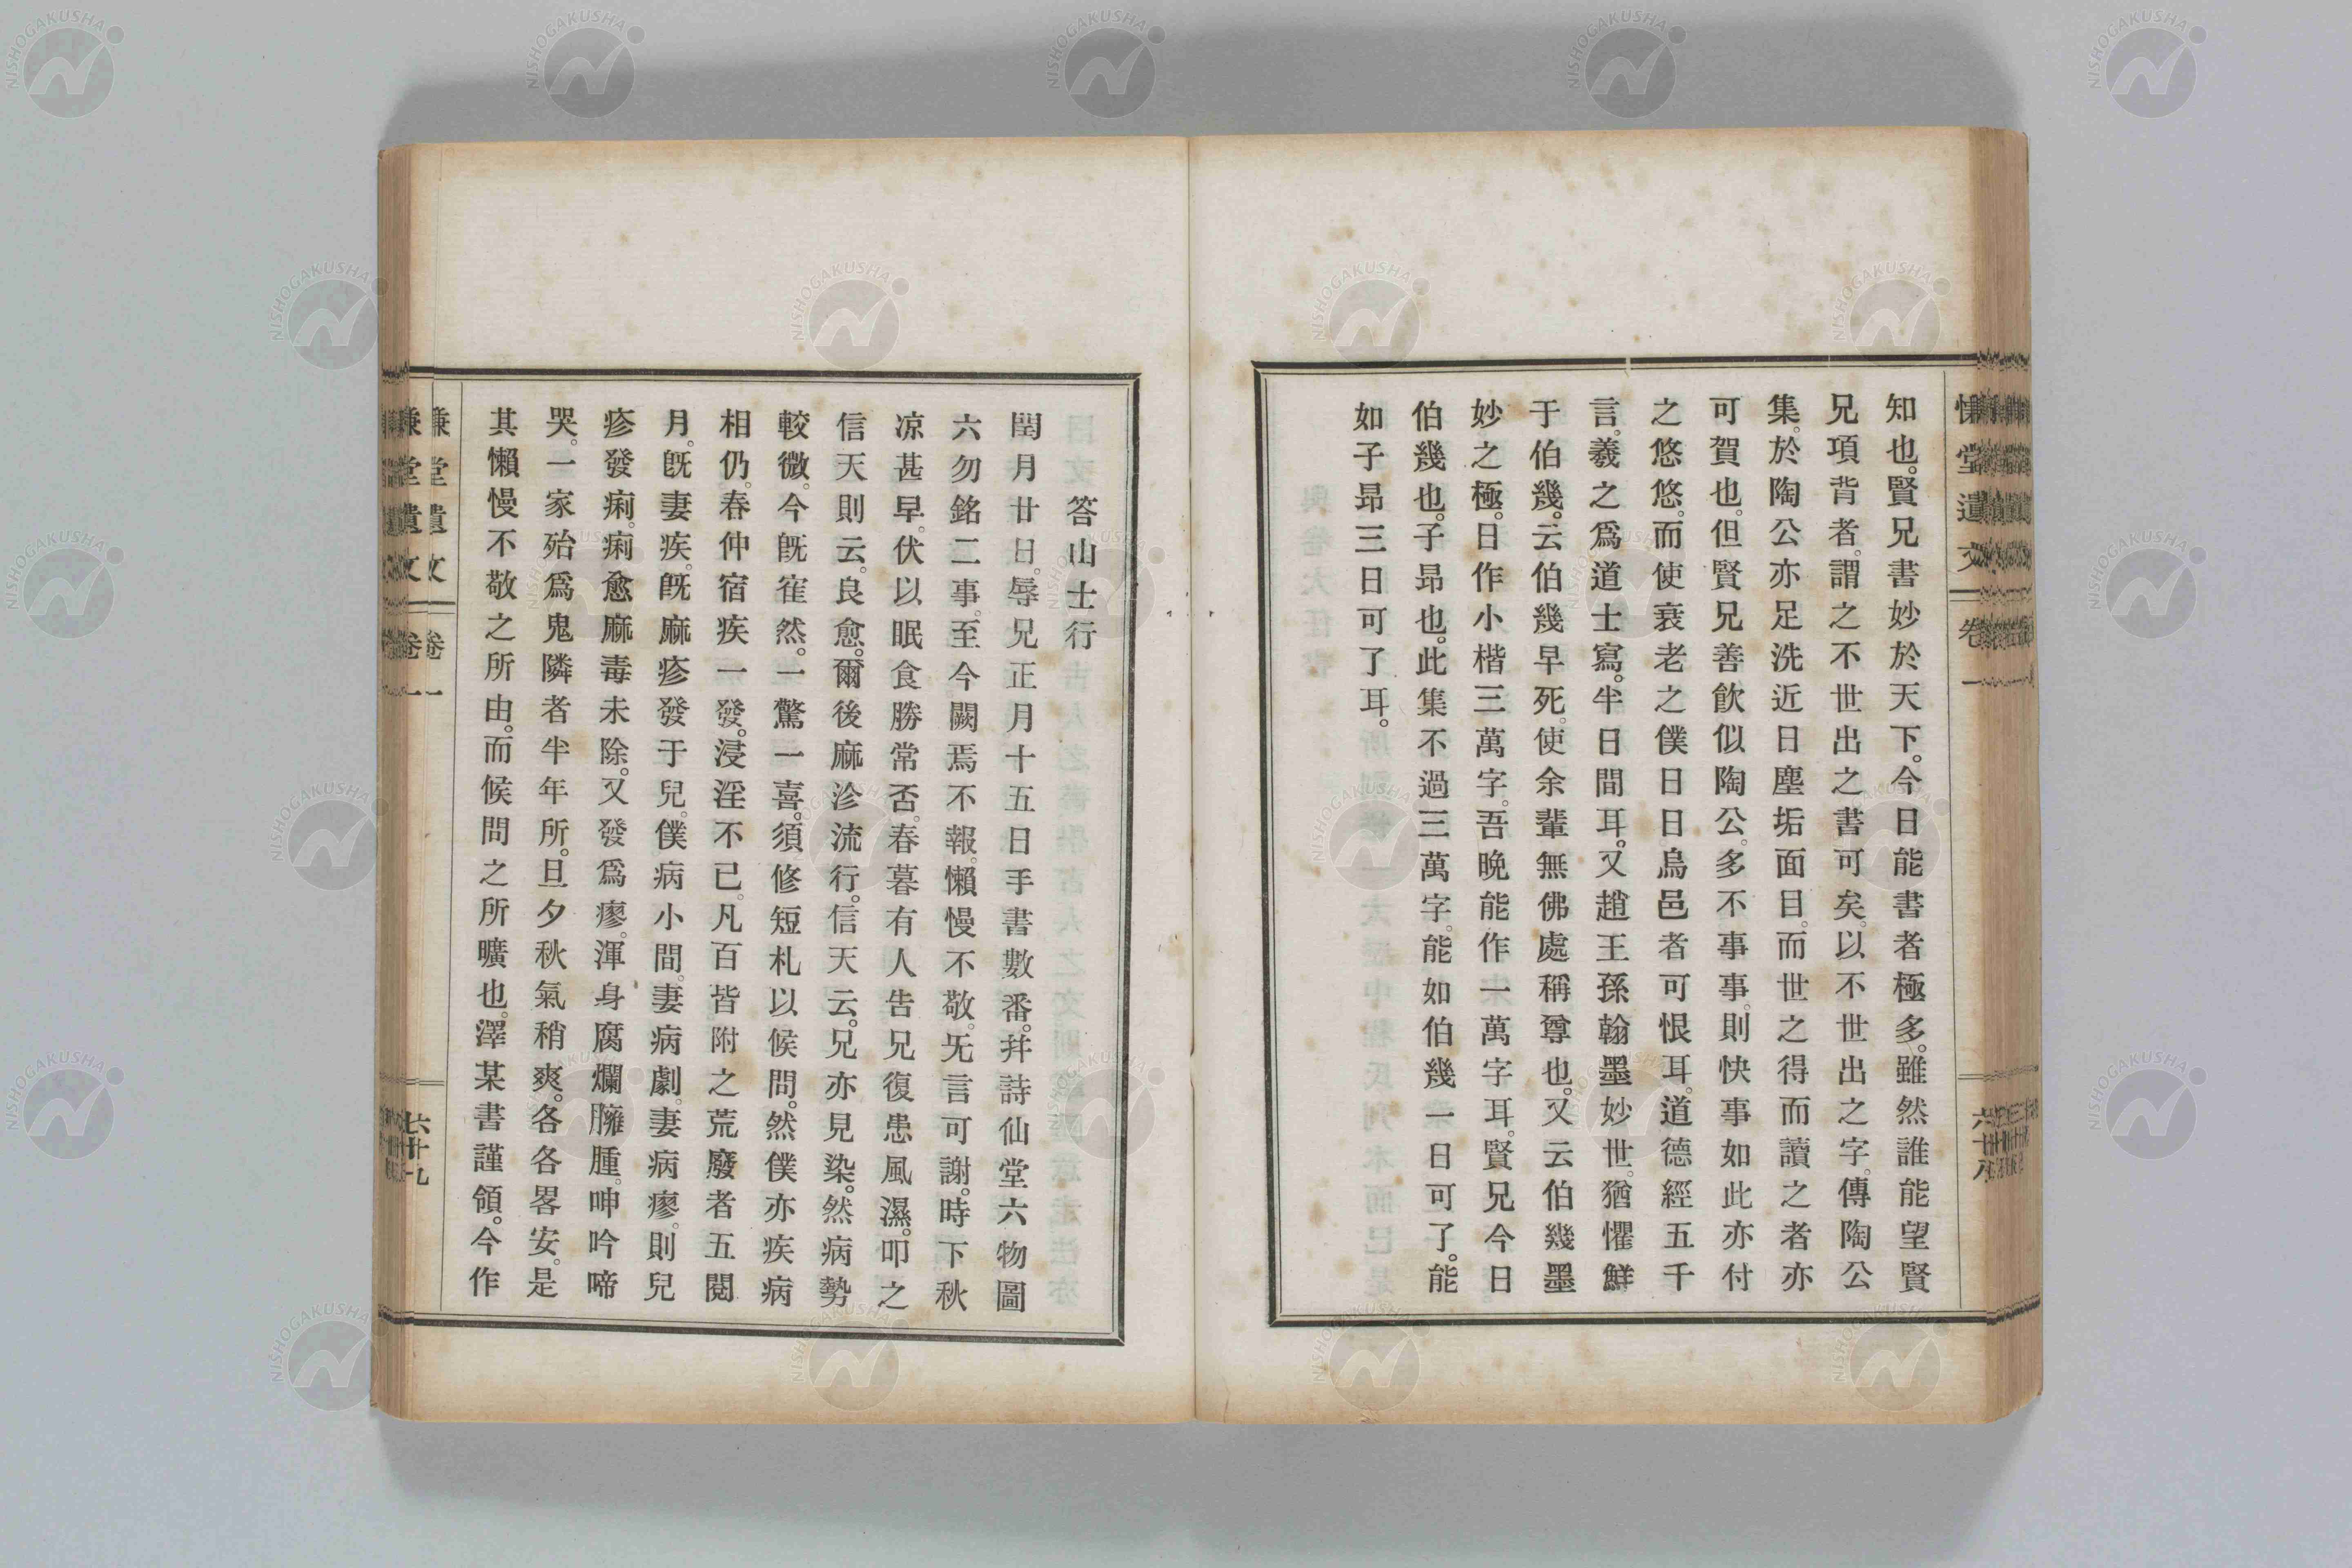 慊堂遺文 卷一
知也。賢兄書妙於天下。今日能書者極多。雖然誰能望賢
兄項背者。謂之不世出之書可矣。以不世出之字。傳陶公
集。於陶公亦足洗近日塵垢面目。而世之得而讀之者亦
可賀也。但賢兄善飮似陶公。多不事事。則快事如此亦付
之悠悠。而使衰老之僕日日烏邑者可恨耳。道德經五千
言。羲之爲道士寫。半日間耳。又趙王孫翰墨妙世。猶懼鮮
于伯幾。云伯幾早死。使余輩無佛處稱尊也。又云伯幾墨
妙之極。日作小楷三萬字。吾晩能作一萬字耳。賢兄今日
伯幾也。子昻也。此集不過三萬字。能如伯幾一日可了。能
如子昻三日可了耳。
答山士行
閏月廿日。辱兄正月十五日手書數番。幷詩仙堂六物圖
六勿銘二事。至今闕焉不報。懶慢不敬。旡言可謝。時下秋
凉甚早。伏以眠食勝常否。春暮有人告兄復患風濕。叩之
信天則云。良愈。爾後麻沴流行。信天云。兄亦見染。然病勢
較微。今既寉然。一驚一喜。須修短札以候問。然僕亦疾病
相仍。春仲宿疾一發。浸淫不已。凡百皆附之荒廢者五閱
月。既妻疾。既麻疹發于兒。僕病小間。妻病劇。妻病瘳。則兒
疹發痢。痢愈麻毒未除。又發爲瘳。渾身腐爛臃腫。呻吟啼
哭。一家殆爲鬼隣者半年所。旦夕秋氣稍爽。各各畧安。是
其懶慢不敬之所由。而候問之所曠也。澤某書謹領。今作
慊堂遺文 卷一